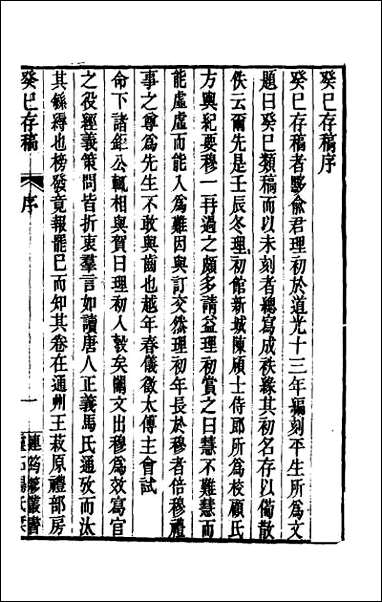 癸巳存稿序
癸巳存稿者黟俞君理初於道光十三年編刻平生所爲文
題曰癸巳類稿而以未刻者總寫成袟緣其初名存以備散
佚云爾先是壬辰冬理初館新城陳碩士侍郎所爲校顧氏
方輿紀要穆一再過之頗多請益理初賞之曰慧不難慧而
能虛虛而能入爲難因與訂交然理初年長於穆者倍穆禮
事之尊爲先生不敢與齒也越年春儀徵太傅主會試
命下諸鉅公輒相與賀曰理初入彀矣闈文出穆爲效寫官
之役經義策問皆折衷羣言如讀唐人正義馬氏通攷而汰
其緐縟也榜發竟報罷已而知其卷在通州王菽原禮部房
癸巳存稿
序
一
連筠簃叢書
靈石楊氏栞